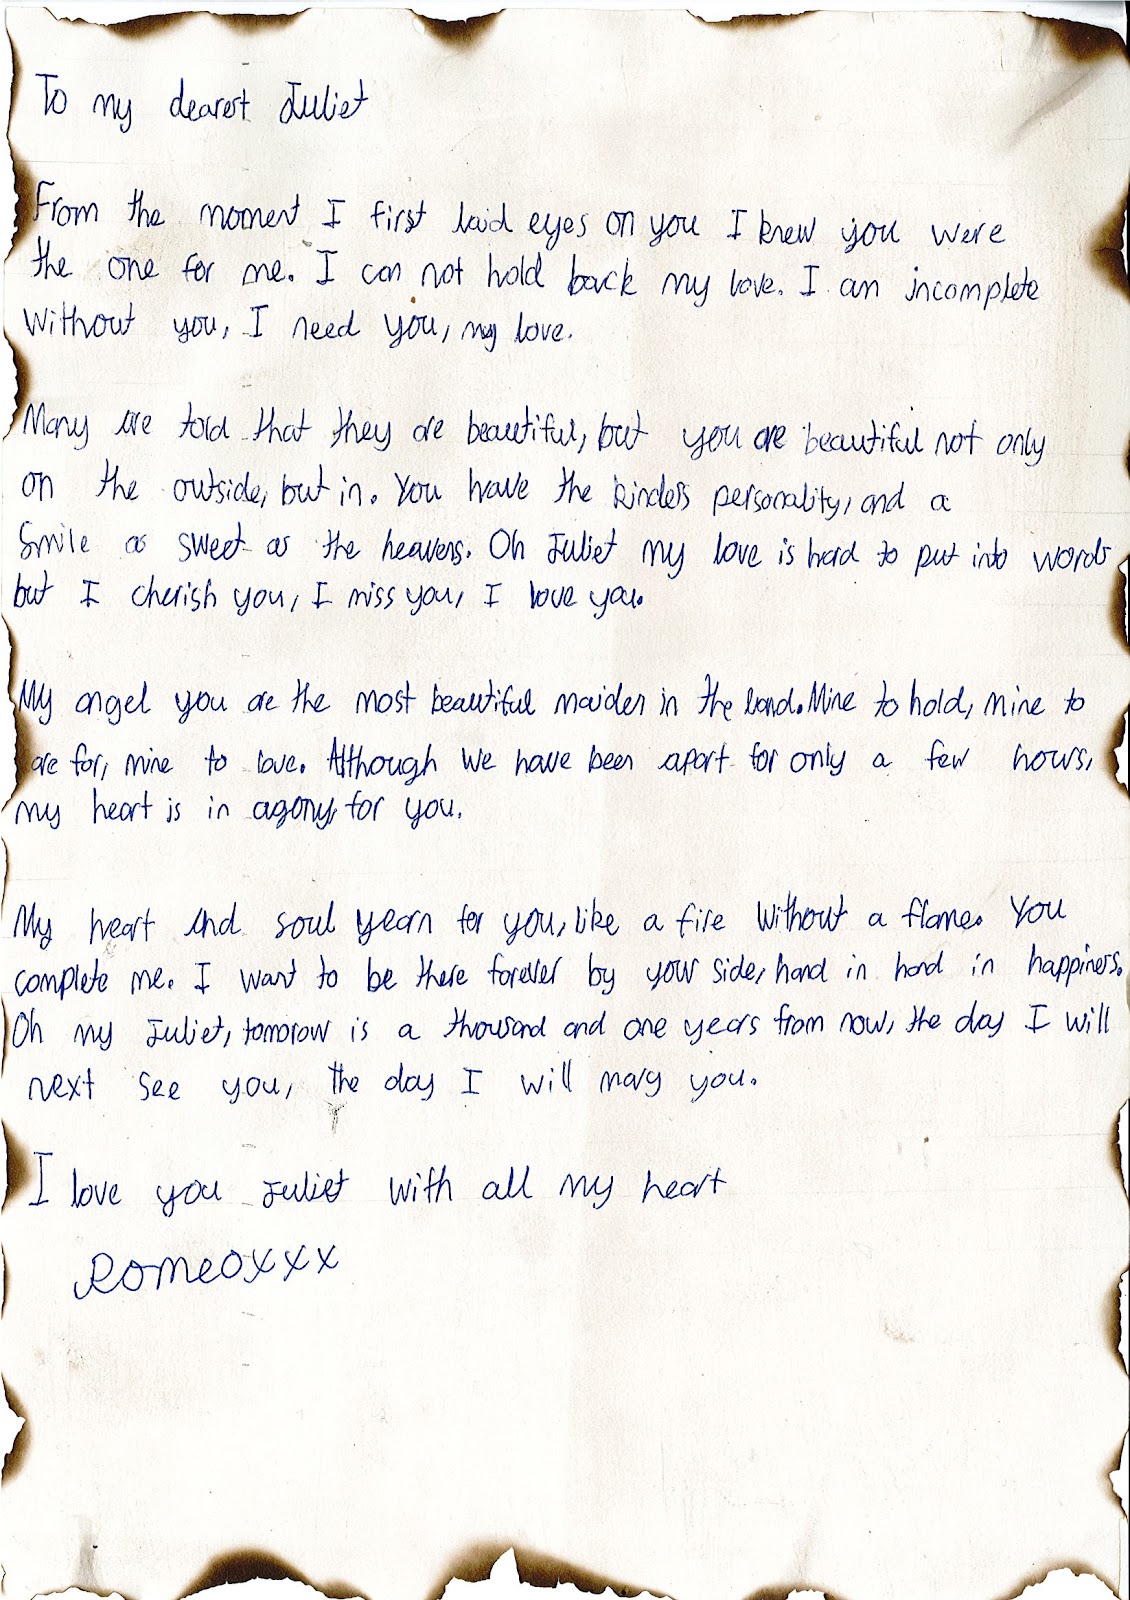 To my dearest Juliet
From the moment I first laid eyes on you I knew you were
the one for me. I can not hold back my love. I am incomplete
without you, I need you, my love.
Many are told that they are beautiful, but you are beautiful not only
on the outside, but in. You have the kindess personality, and a
smile as sweet as the heavens. Oh Juliet my love is hard to put into words
but I cherish you, I miss you, I love you.
My angel you are the most beautiful maiden in the land. Mine to hold, mine to
are for, mine to love. Although we have been apart for only a few hours,
my heart is in agony, for you.
My heart and soul yearn for you, like a fire without a flame. You
complete me. I want to be there forever by your side, hand in hand in happiness.
Oh my Juliet, tomorow is a thousand and one years from now, the day I will
next see you, the day I will marry you.
I love you Juliet with all my heart
Romeo xxx